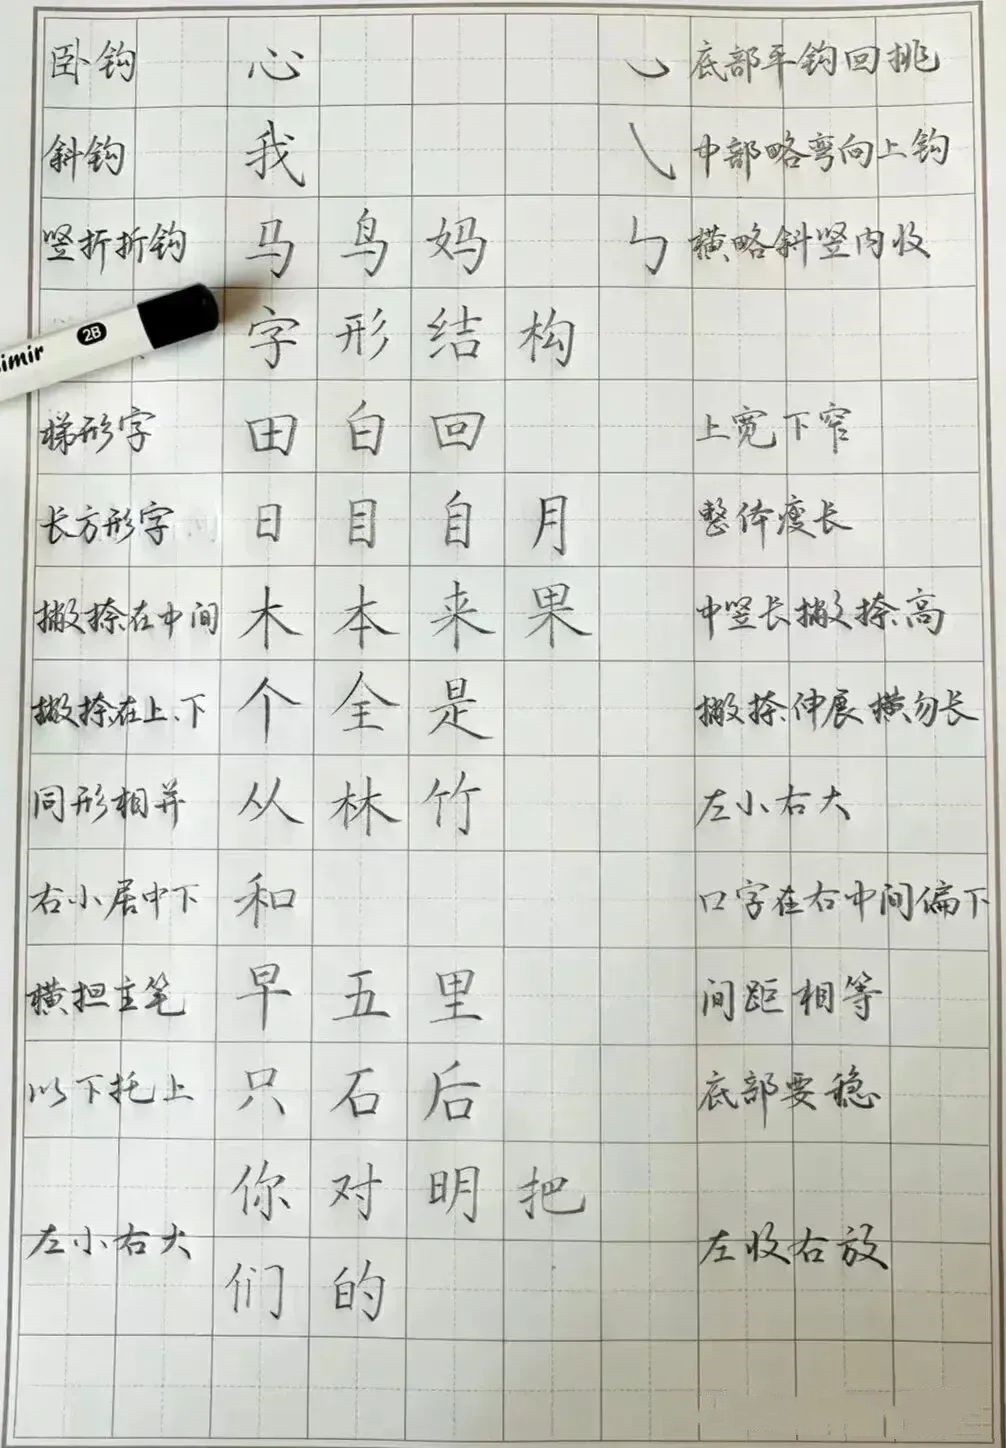 卧钩 心 ㇃ 底部平钩回挑
斜钩 我 ㇂ 中部略弯向上钩
竖折折钩 马 鸟 妈 ㄅ 横略斜竖内收
字 形 结 构
imir 2B
梯形字 田 白 回 上宽下窄
长方形字 日 目 自 月 整体瘦长
撇捺在中间 木 本 来 果 中竖长撇捺高
撇捺在上、下 个 全 是 撇捺伸展横勿长
同形相并 从 林 竹 左小右大
右小居中下 和 口字在右中间偏下
横担主笔 早 五 里 间距相等
以下托上 只 石 后 底部要稳
你 对 明 把
左小右大 左收右放
们 的